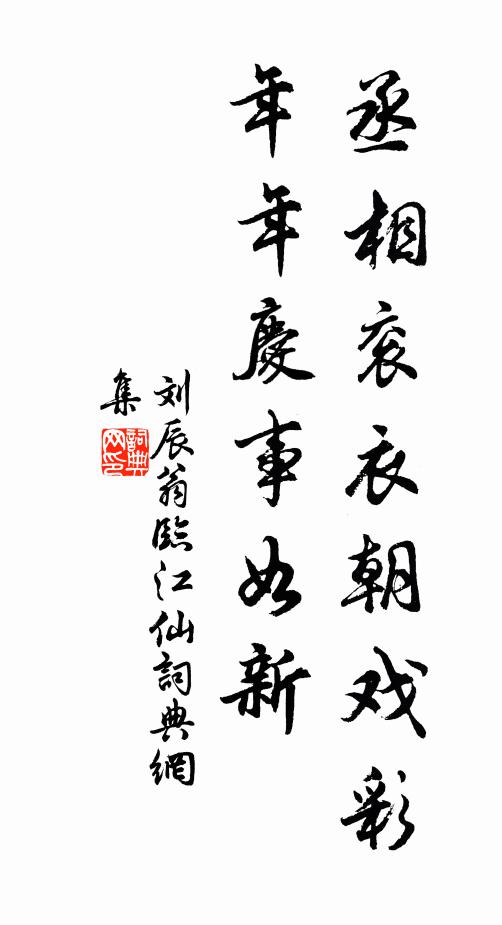 丞相衮衣朝戏彩
年年慶事如新
刘辰翁臨江仙詞典網
集
詞典
网印